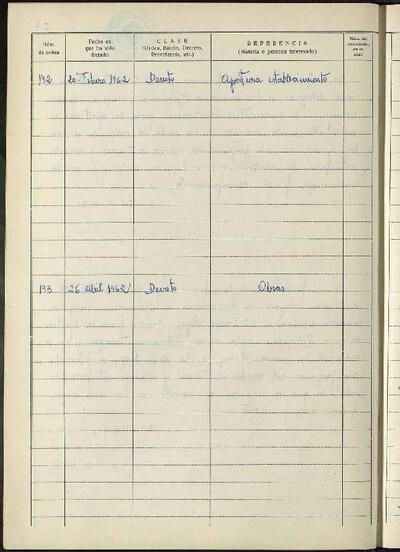 Núm. de orden
Fecha en que ha sido dictado
CLASE
(Orden, Bando, Decreto, Providencia, etc.)
REFERENCIA
(Materia o persona interesada)
Núm. del
192 20-Febrero 1962 Decreto Apertura establecimiento
193 26 Abril 1962 Decreto Obras